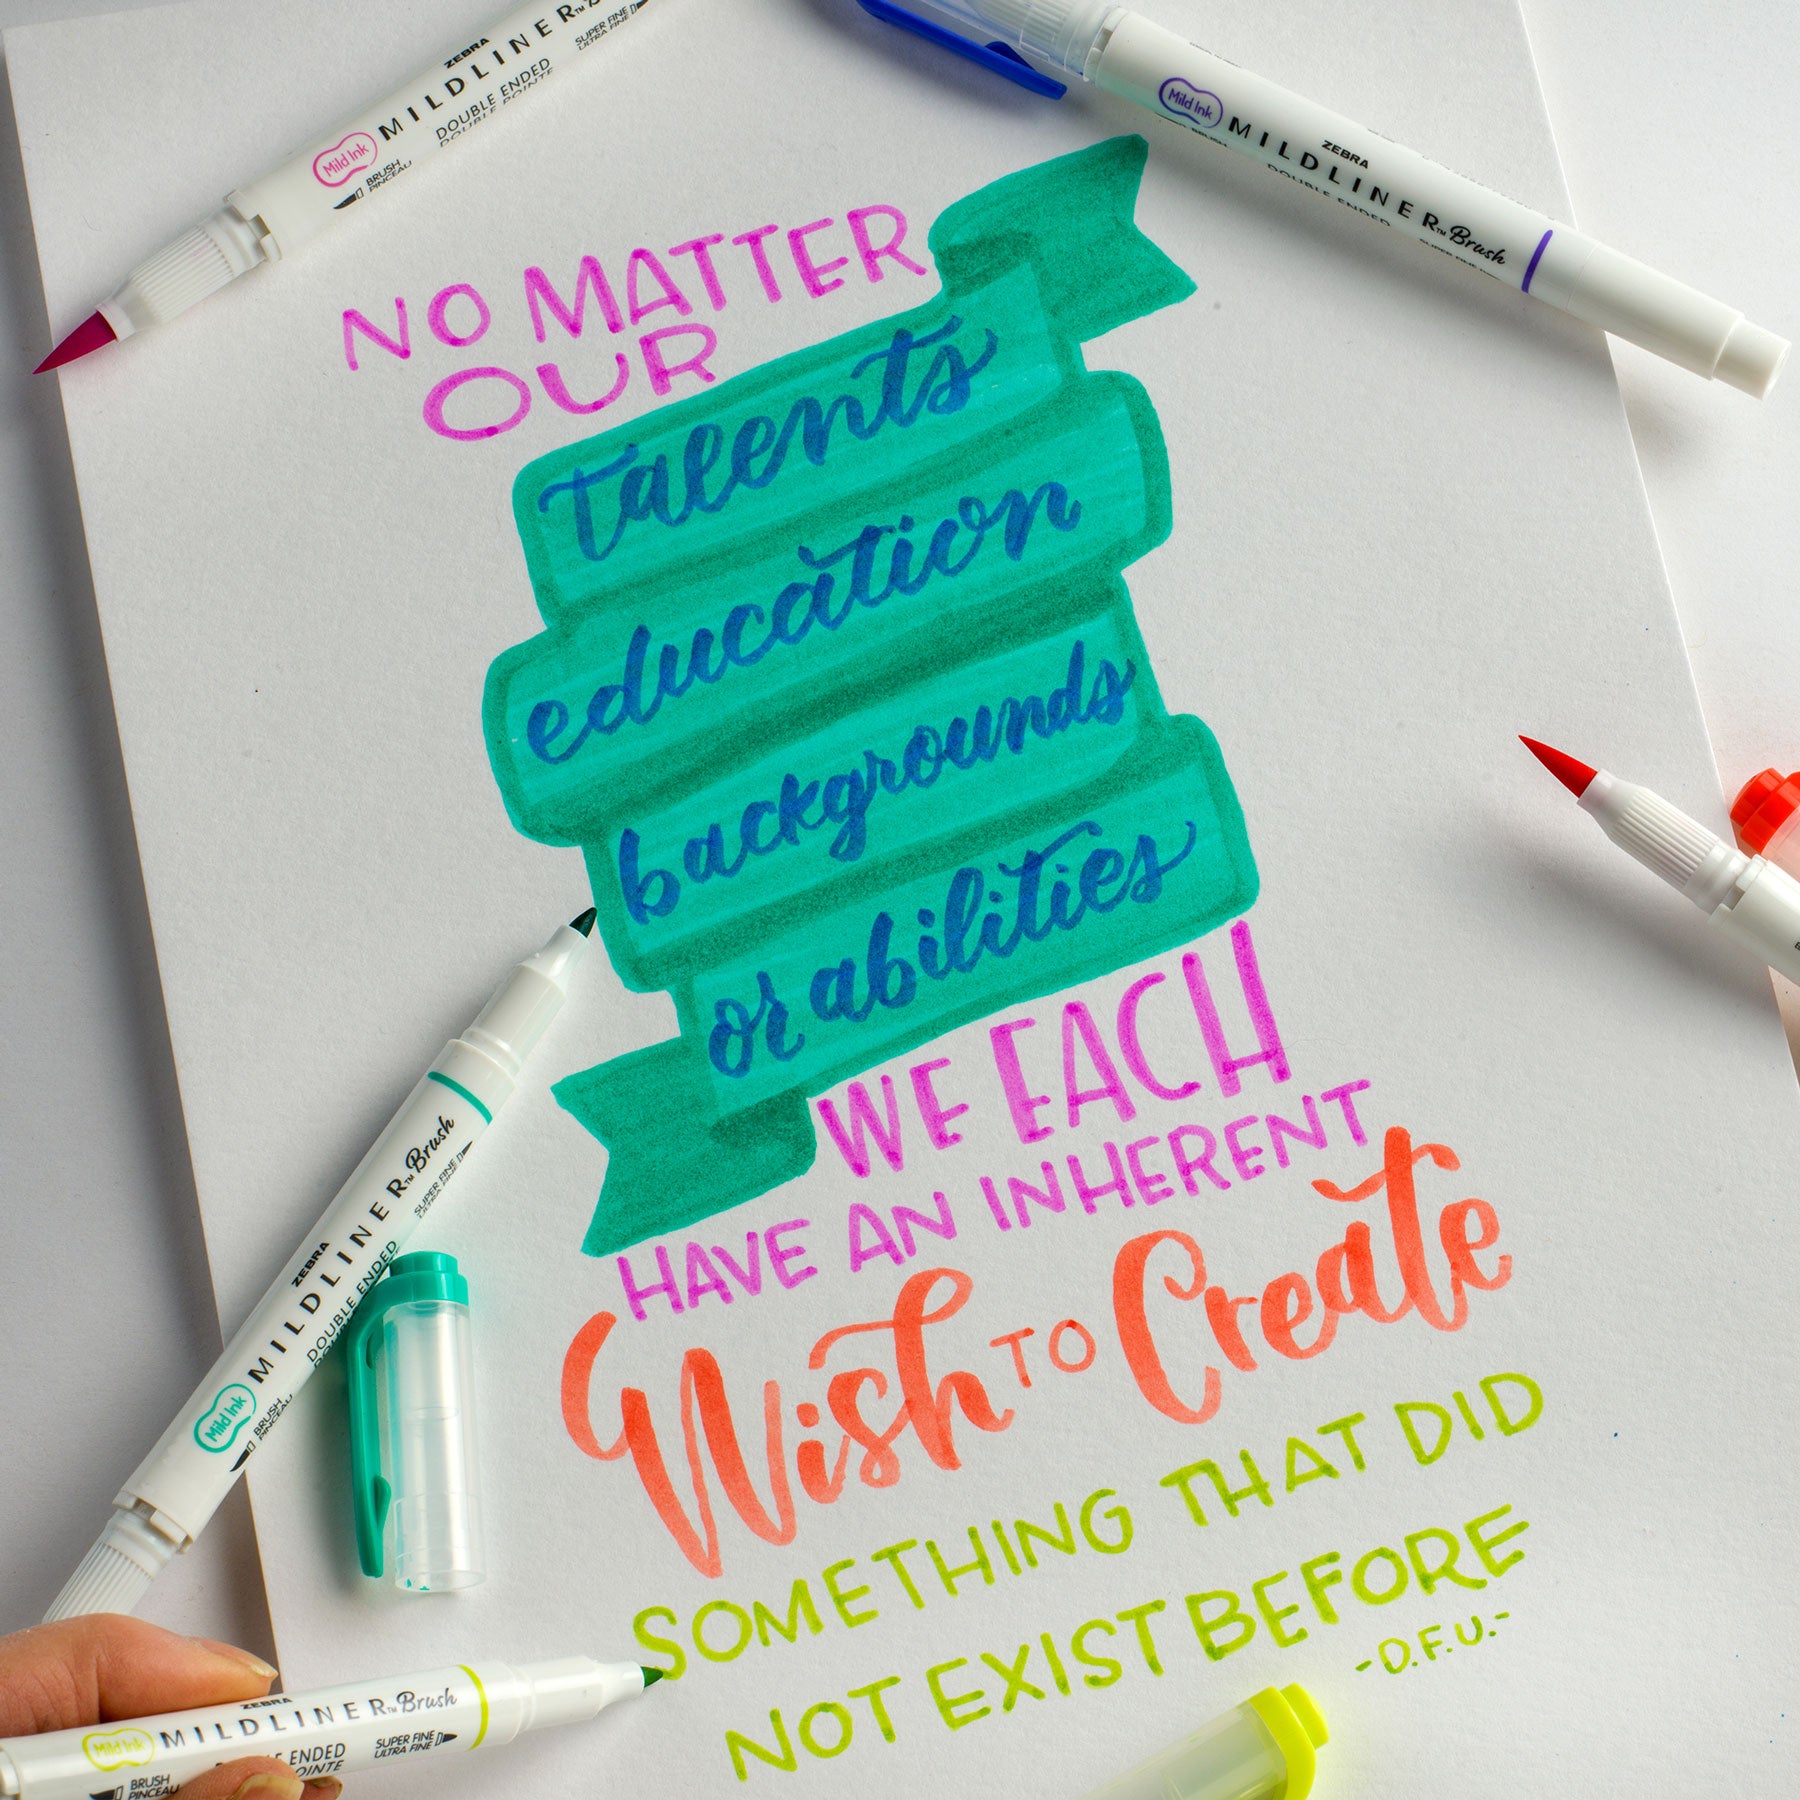 NO MATTER
OUR
talents
education
backgrounds
or abilities
WE EACH
HAVE AN INHERENT
Wish TO Create
SOMETHING THAT DID
NOT EXIST BEFORE
-D.F.U.-
ZEBRA
MILDLINER
DOUBLE ENDED
DOUBLE POINTE
SUPER FINE
ULTRA FINE
Mild Ink
BRUSH
PINCEAU
Mild Ink
ZEBRA
MILDLINER™ Brush
DOUBLE ENDED
SUPER FINE
ZEBRA
MILDLINER™ Brush
DOUBLE ENDED
SUPER FINE
ULTRA FINE
Mild Ink
BRUSH
PINCEAU
ZEBRA
MILDLINER™ Brush
Mild Ink
ENDED
POINTE
SUPER FINE
ULTRA FINE
BRUSH
PINCEAU